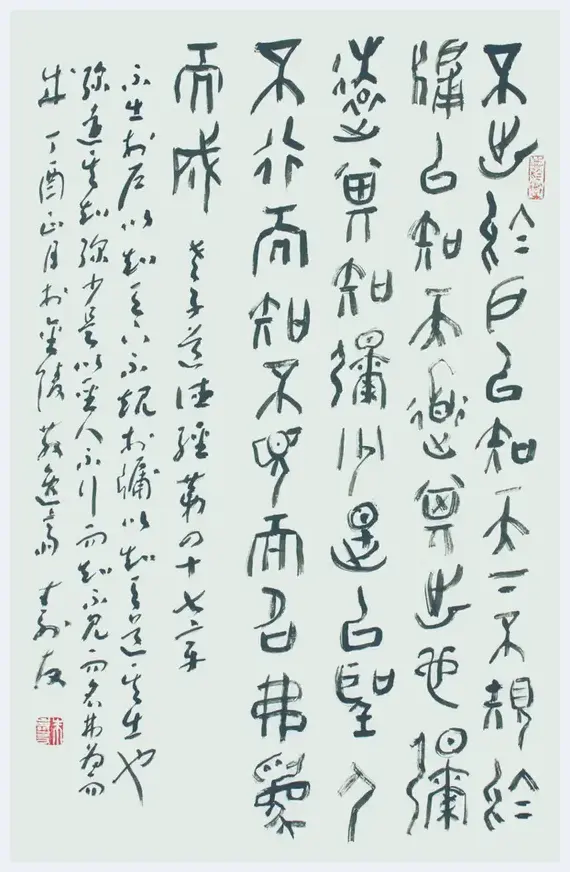 不出於戶以知天下不規於
牖以知天道其出也彌
遠其知彌少是以聖人
不行而知不見而名弗為
而成
老子道德經第四十七章
不出於戶以知天下不規於牖以知天道其出也
弥遠其知弥少是以聖人不行而知不見而名弗為而
成 丁酉正月於金陵